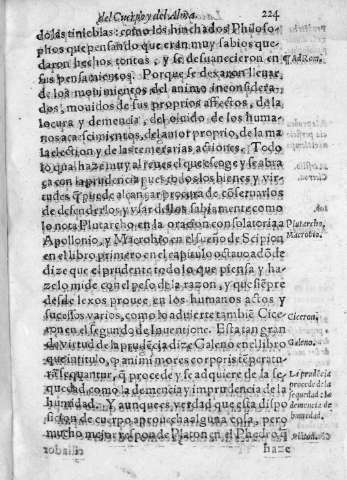 del Cuerpo y del Alma. 224
do las tinieblas: como los hinchados Philoso-
phos que pensando que eran muy sabios que-
daron hechos tontos, y se desuanecieron en
sus pensamientos. Porque se dexaron lleuar
de los mouimientos del animo inconsidera-
dos, mouidos de sus proprios affectos, dẽ la
locura y demencia, del oluido de los huma-
nos acaescimientos, del amor proprio, de la ma
la election y de las temerarias actiones. Todo
lo qual haze muy al reues el que escoge y se abra
ça con la prudencia pues todos los bienes y vir-
tudes q̃ puede alcançar procura de cõseruarlos
de defenderlos, y vsar dellos sabiamente como
lo nota Plutarcho en la oracion consolatoria a
Apollonio, y Macrobio en el sueño de Scipion
en el libro primero en el capitulo octauo adõ de
dize que el prudente todo lo que piensa y ha-
ze lo mide con el peso de la razon, y que siẽpre
desde lexos prouee en los humanos actos y
sucessos varios, como lo aduierte tambiẽ Cice-
ron en el segundo de Inuentione. Esta tan gran
de virtud de la prudẽcia dize Galeno en el libro
que intitulo, q̃ animi mores corporis tẽperatu-
rã sequantur, q̃ procede y se adquiere de la se-
quedad como la demencia y imprudencia de la
humidad. Y aunque es verdad que esta dispo
sicion de cuerpo aprouecha algun a cosa, pero
mucho mejor respon de Platon en el Phedro q̃
haze
¶ Ad Rom.
Plutarcho,
Macrobio.
Ciceron.
Galeno.
La prudẽcia
procede de la
sequedad cõo
demencia de
humedad.
Platon.